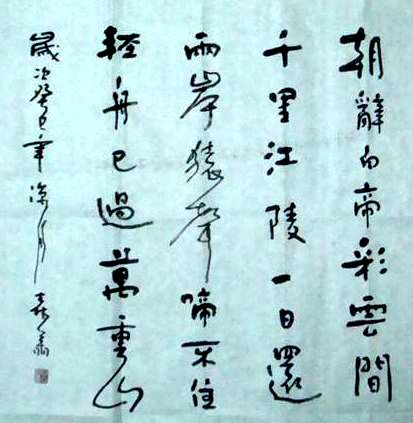 朝辭白帝彩雲間
千里江陵一日還
兩岸猿聲啼不住
輕舟已過萬重山
歲次癸巳年涼月